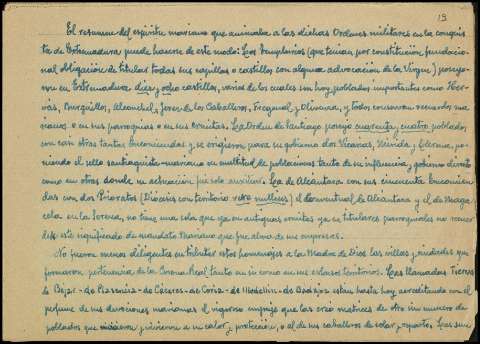 19
El resumen del espíritu mariano que animaba a las dichas Ordenes militares en la conquis
ta de Extremadura puede hacerse de este modo: Los Templarios (que tenían por constitución fundacio
nal obligación de titular todas sus capillas o castillos con alguna advocación de la Virgen) poseye
ron en Extremadura diez y ocho castillos, varios de los cuales son hoy poblados importantes como Her
vás, Burguillos, Alconchel, Jerez de los Caballeros, Fregenal y Olivenza, y todos conservan recuerdos ma
rianos o en sus parroquias o en sus ermitas. La Orden de Santiago poseyó cuarenta y cuatro poblados,
con casi otras tantas Encomiendas y se erigieron para su gobierno dos Vicarías, Mérida y Llerena, po
niendo el sello santiaguista-mariano en multitud de poblaciones tanto de su influencia y gobierno directo
como en otras donde su actuación fué solo auxiliar. La de Alcántara con sus cincuenta Encomien
das con dos Prioratos (Diócesis con territorio vere nullius) el conventual de Alcántara y el de Maga
cela en la Serena, no tiene una sola que ya en antiguas ermitas ya en titulares parroquiales no recuer
de este significado de mandato Mariano que fue alma de sus empresas.
No fueron menos diligentes en tributar estos homenajes a la Madre de Dios las villas y ciudades que
formaron pertenencia de la Corona Real tanto en si como en sus extensos territorios. Las llamadas Tierras
de Béjar - de Plasencia - de Cáceres - de Coria - de Medellín - de Badajoz están hasta hoy acreditando con el
perfume de sus devociones marianas el vigoroso empuje que las creó matrices de otro sin número de
poblados que nacieron y vivieron a su calor y protección, o al de sus caballeros de solar y reparto. Las